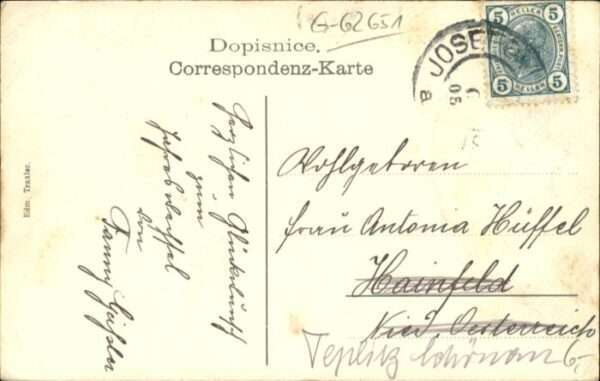 G-62651
Dopisnice.
Correspondenz-Karte
5 HELLER 5
5 HELLER 5
JOSE
05
a
Edm. Traxler.
Herzlichen Glückwunsch
zum
Jahreswechsel
von
Fanny
Wohlgeboren
Frau Antonia Hüffel
Hainfeld
Nied. Oesterreich
Teplitz Schönau